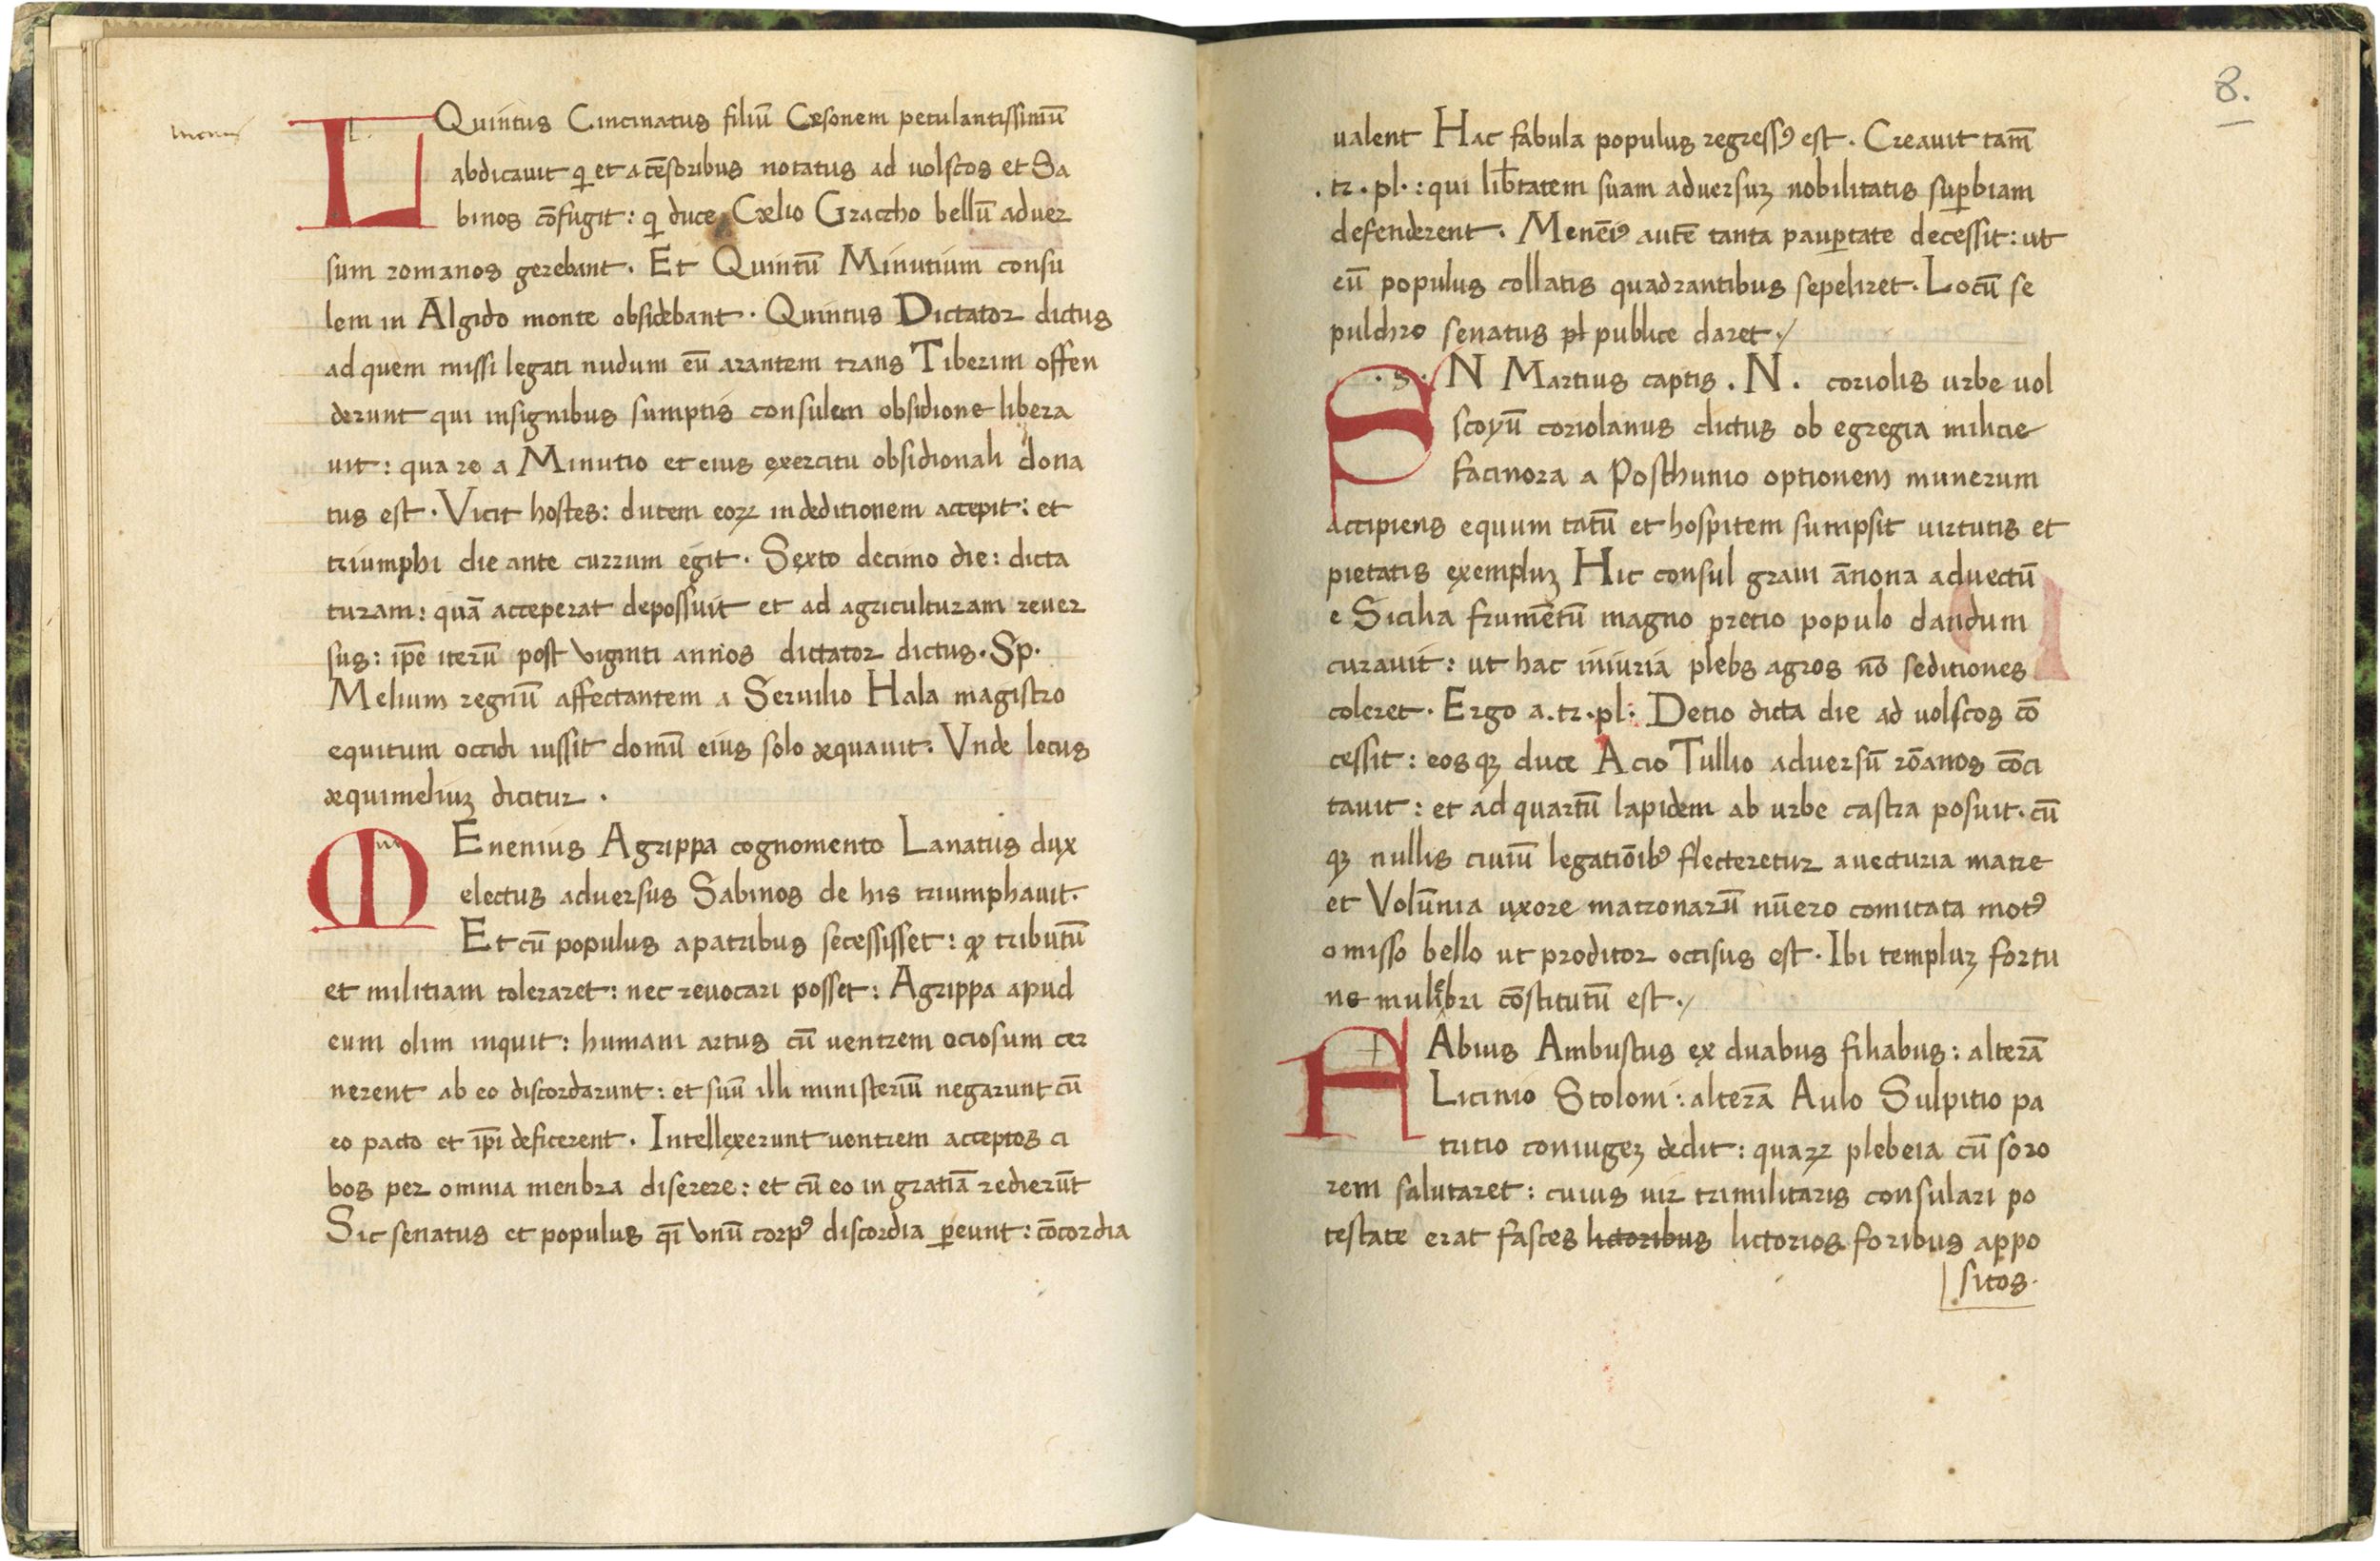 L Quintus Cincinatus filiū Cęsonem petulantissimū
abdicauit q̄ et a cēsoribus notatus ad uolscos et Sa
binos cōfugit: q̄ duce Cælio Graccho bellū aduer
sum romanos gerebant. Et Quintū Minutium consu
lem in Algido monte obsidebant. Quintus Dictator dictus
ad quem missi legati nudum eū arantem trans Tiberim offen
derunt qui insignibus sumptis consulem obsidione libera
uit: quare a Minutio et eius exercitu obsidionali dona
tus est. Vicit hostes: ducem eoꝝ in deditionem accepit: et
triumphi die ante currum egit. Sexto decimo die: dicta
turam: quā acceperat depossuit et ad agriculturam reuer
sus: ip̄e iterū post viginti annos dictator dictus. Sp.
Melium regnū affectantem a Seruilio Hala magistro
equitum occidi iussit domū eius solo æquauit. Vnde locus
æquimeliuʒ dicitur.
M Enenius Agrippa cognomento Lanatus dux
electus aduersus Sabinos de his triumphauit.
Et cū populus a patribus secessisset: qꝫ tributū
et militiam toleraret: nec reuocari posset: Agrippa apud
eum olim inquit: humani artus cū uentrem ociosum cer
nerent ab eo discordarunt: et suū illi ministeriū negarunt cū
eo pacto et ip̄i deficerent. Intellexerunt uentrem acceptos ci
bos per omnia menbra diserere: et cū eo in gratiā redierūt
Sic senatus et populus q̄i vnū corpꝰ discordia ꝑeunt: cōcordia
8.
ualent Hac fabula populus regressꝰ est. Creauit tam̄
.tr.pl.: qui lib̄tatem suam aduersuʒ nobilitatis suꝑbiam
defenderent. Menēiꝰ autē tanta pauꝑtate decessit: ut
eū populus collatis quadrantibus sepeliret. Locū se
pulchro senatus pl publice daret./
S .s. N Martius captis. N. coriolis urbe uol
scoyū coriolanus dictus ob egregia milicie
facinora a Posthunio optionem munerum
accipiens equum tatū et hospitem sumpsit uirtutis et
pietatis exempluʒ Hic consul graui ānona aduectū
e Sicilia frumētū magno pretio populo dandum
curauit: ut hac iniuria plebs agros nō seditiones
coleret. Ergo a.tr.pl. Detio dicta die ad uolscos cō
cessit: eos qꝫ duce Acio Tullio aduersū rōanos cōci
tauit: et ad quartū lapidem ab urbe castra posuit. cū
qꝫ nullis ciuiū legatiōibꝰ flecteretur a uecturia matre
et Volūnia uxore matronarū nūero comitata motꝰ
omisso bello ut proditor occisus est. Ibi templuʒ fortu
ne muliebri cōstitutū est./
F Abius Ambustus ex duabus filiabus: alterā
Licinio Stoloni: alterā Aulo Sulpitio pa
tricio coniugeʒ dedit: quaꝝ plebeia cū soro
rem salutaret: cuius uir trimilitaris consulari po
testate erat fasces lictoribus lictorios foribus appo
sitos.